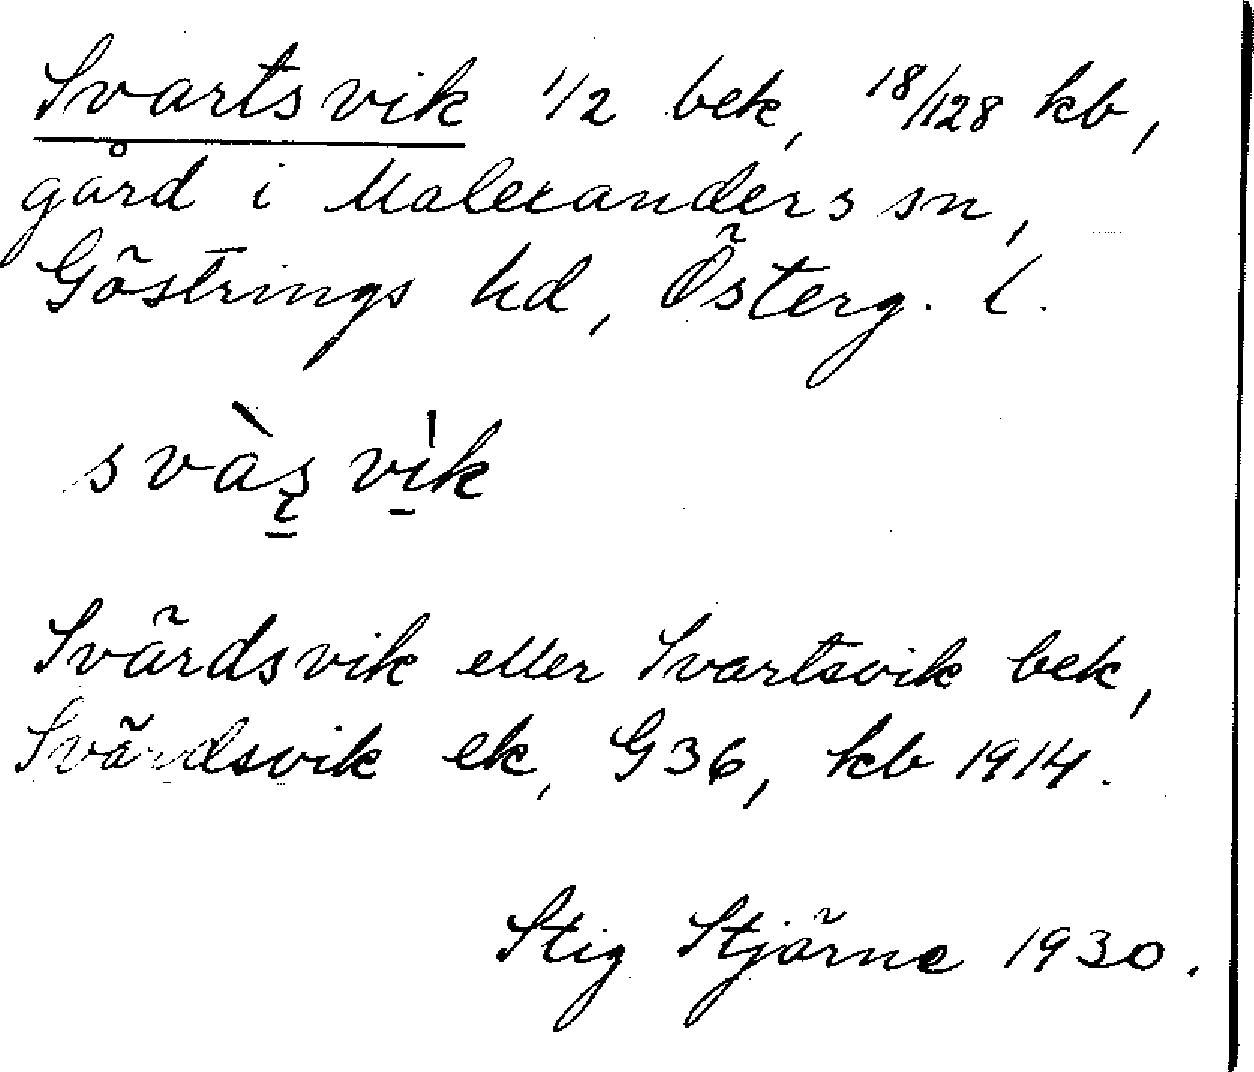 Svartsvik 1/2 bek, 18/128 kb,
gård i Malexanders sn,
Göstrings hd, Österg. l.
svàʂ vi̠k
Svärdsvik eller Svartsvik bek,
Svärdsvik ek, G36, kb 1914.
Stig Stjärne 1930.